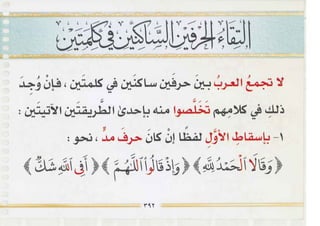 التقاء الحرفين الساكنين في كلمتين
لا تجمعُ العربُ بينَ حرفَين ساكنَين في كلمتَين ، فإنْ وُجِدَ
ذلكَ في كلامِهم تَخَلَّصوا منه بإحدىٰ الطَّريقتَين الآتيتَين :
١- بإسقاطِ الأوَّلِ لفظًا إنْ كانَ حرفَ مدٍّ ، نحو :
﴿ وَقَالَا ٱلْحَمْدُ لِلَّهِ ﴾ ﴿ وَإِذْ قَالُوا۟ ٱللَّهُمَّ ﴾ ﴿ أَفِى ٱللَّهِ شَكٌّ ﴾
٣٩٢